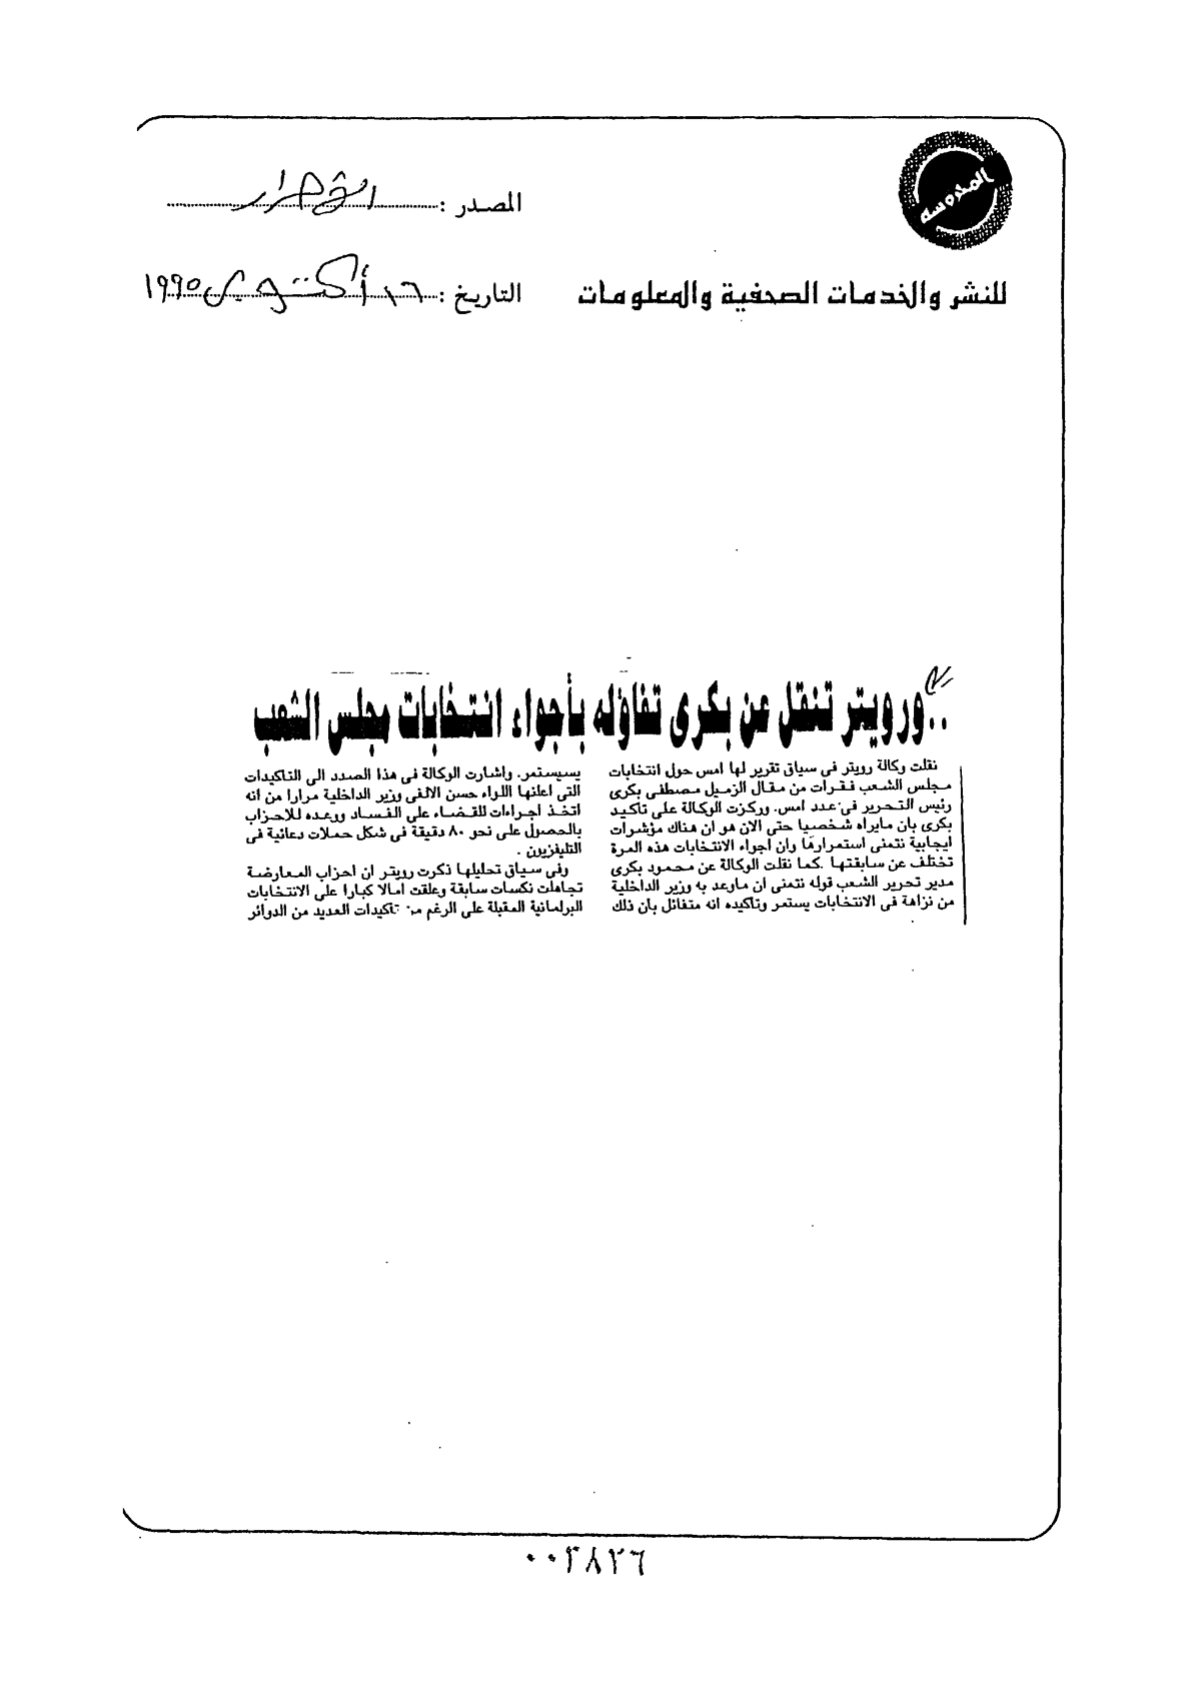 المحروسه
المصدر : الأحرار
للنشر والخدمات الصحفية والمعلومات
التاريخ : ١٦ أكتوبر ١٩٩٥
..ورويتر تنقل عن بكرى تفاؤله بأجواء انتخابات مجلس الشعب
نقلت وكالة رويتر فى سياق تقرير لها امس حول انتخابات
مجلس الشعب فقرات من مقال الزميل مصطفى بكرى
رئيس التحرير فى عدد امس. وركزت الوكالة على تأكيد
بكرى بان مايراه شخصيا حتى الان هو ان هناك مؤشرات
ايجابية نتمنى استمرارها وان اجواء الانتخابات هذه المرة
تختلف عن سابقتها .كما نقلت الوكالة عن محمود بكرى
مدير تحرير الشعب قوله نتمنى ان ماوعد به وزير الداخلية
من نزاهة فى الانتخابات يستمر وتاكيده انه متفائل بان ذلك
يسيستمر. واشارت الوكالة فى هذا الصدد الى التاكيدات
التى اعلنها اللواء حسن الالفى وزير الداخلية مرارا من انه
اتخذ اجراءات للقضاء على الفساد ووعده للاحزاب
بالحصول على نحو ٨٠ دقيقة فى شكل حملات دعائية فى
التليفزيون .
وفى سياق تحليلها ذكرت رويتر ان احزاب المعارضة
تجاهلت نكسات سابقة وعلقت امالا كبارا على الانتخابات
البرلمانية المقبلة على الرغم من تاكيدات العديد من الدوائر
٠٠٣٨٢٦